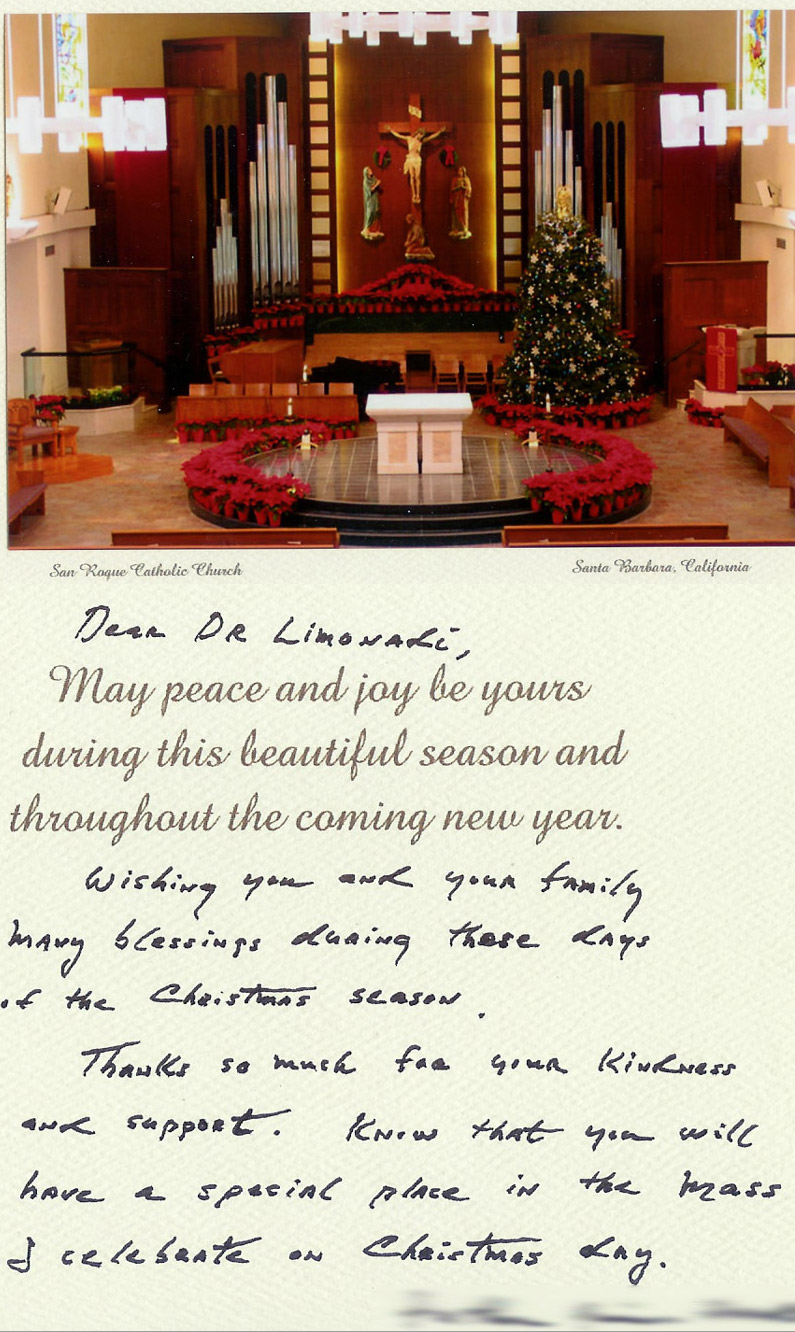 San Roque Catholic Church
Santa Barbara, California
Dear DR Limonadi,
May peace and joy be yours
during this beautiful season and
throughout the coming new year.
Wishing you and your family
many blessings during these days
of the Christmas season.
Thanks so much for your kindness
and support. Know that you will
have a special place in the Mass
I celebrate on Christmas day.